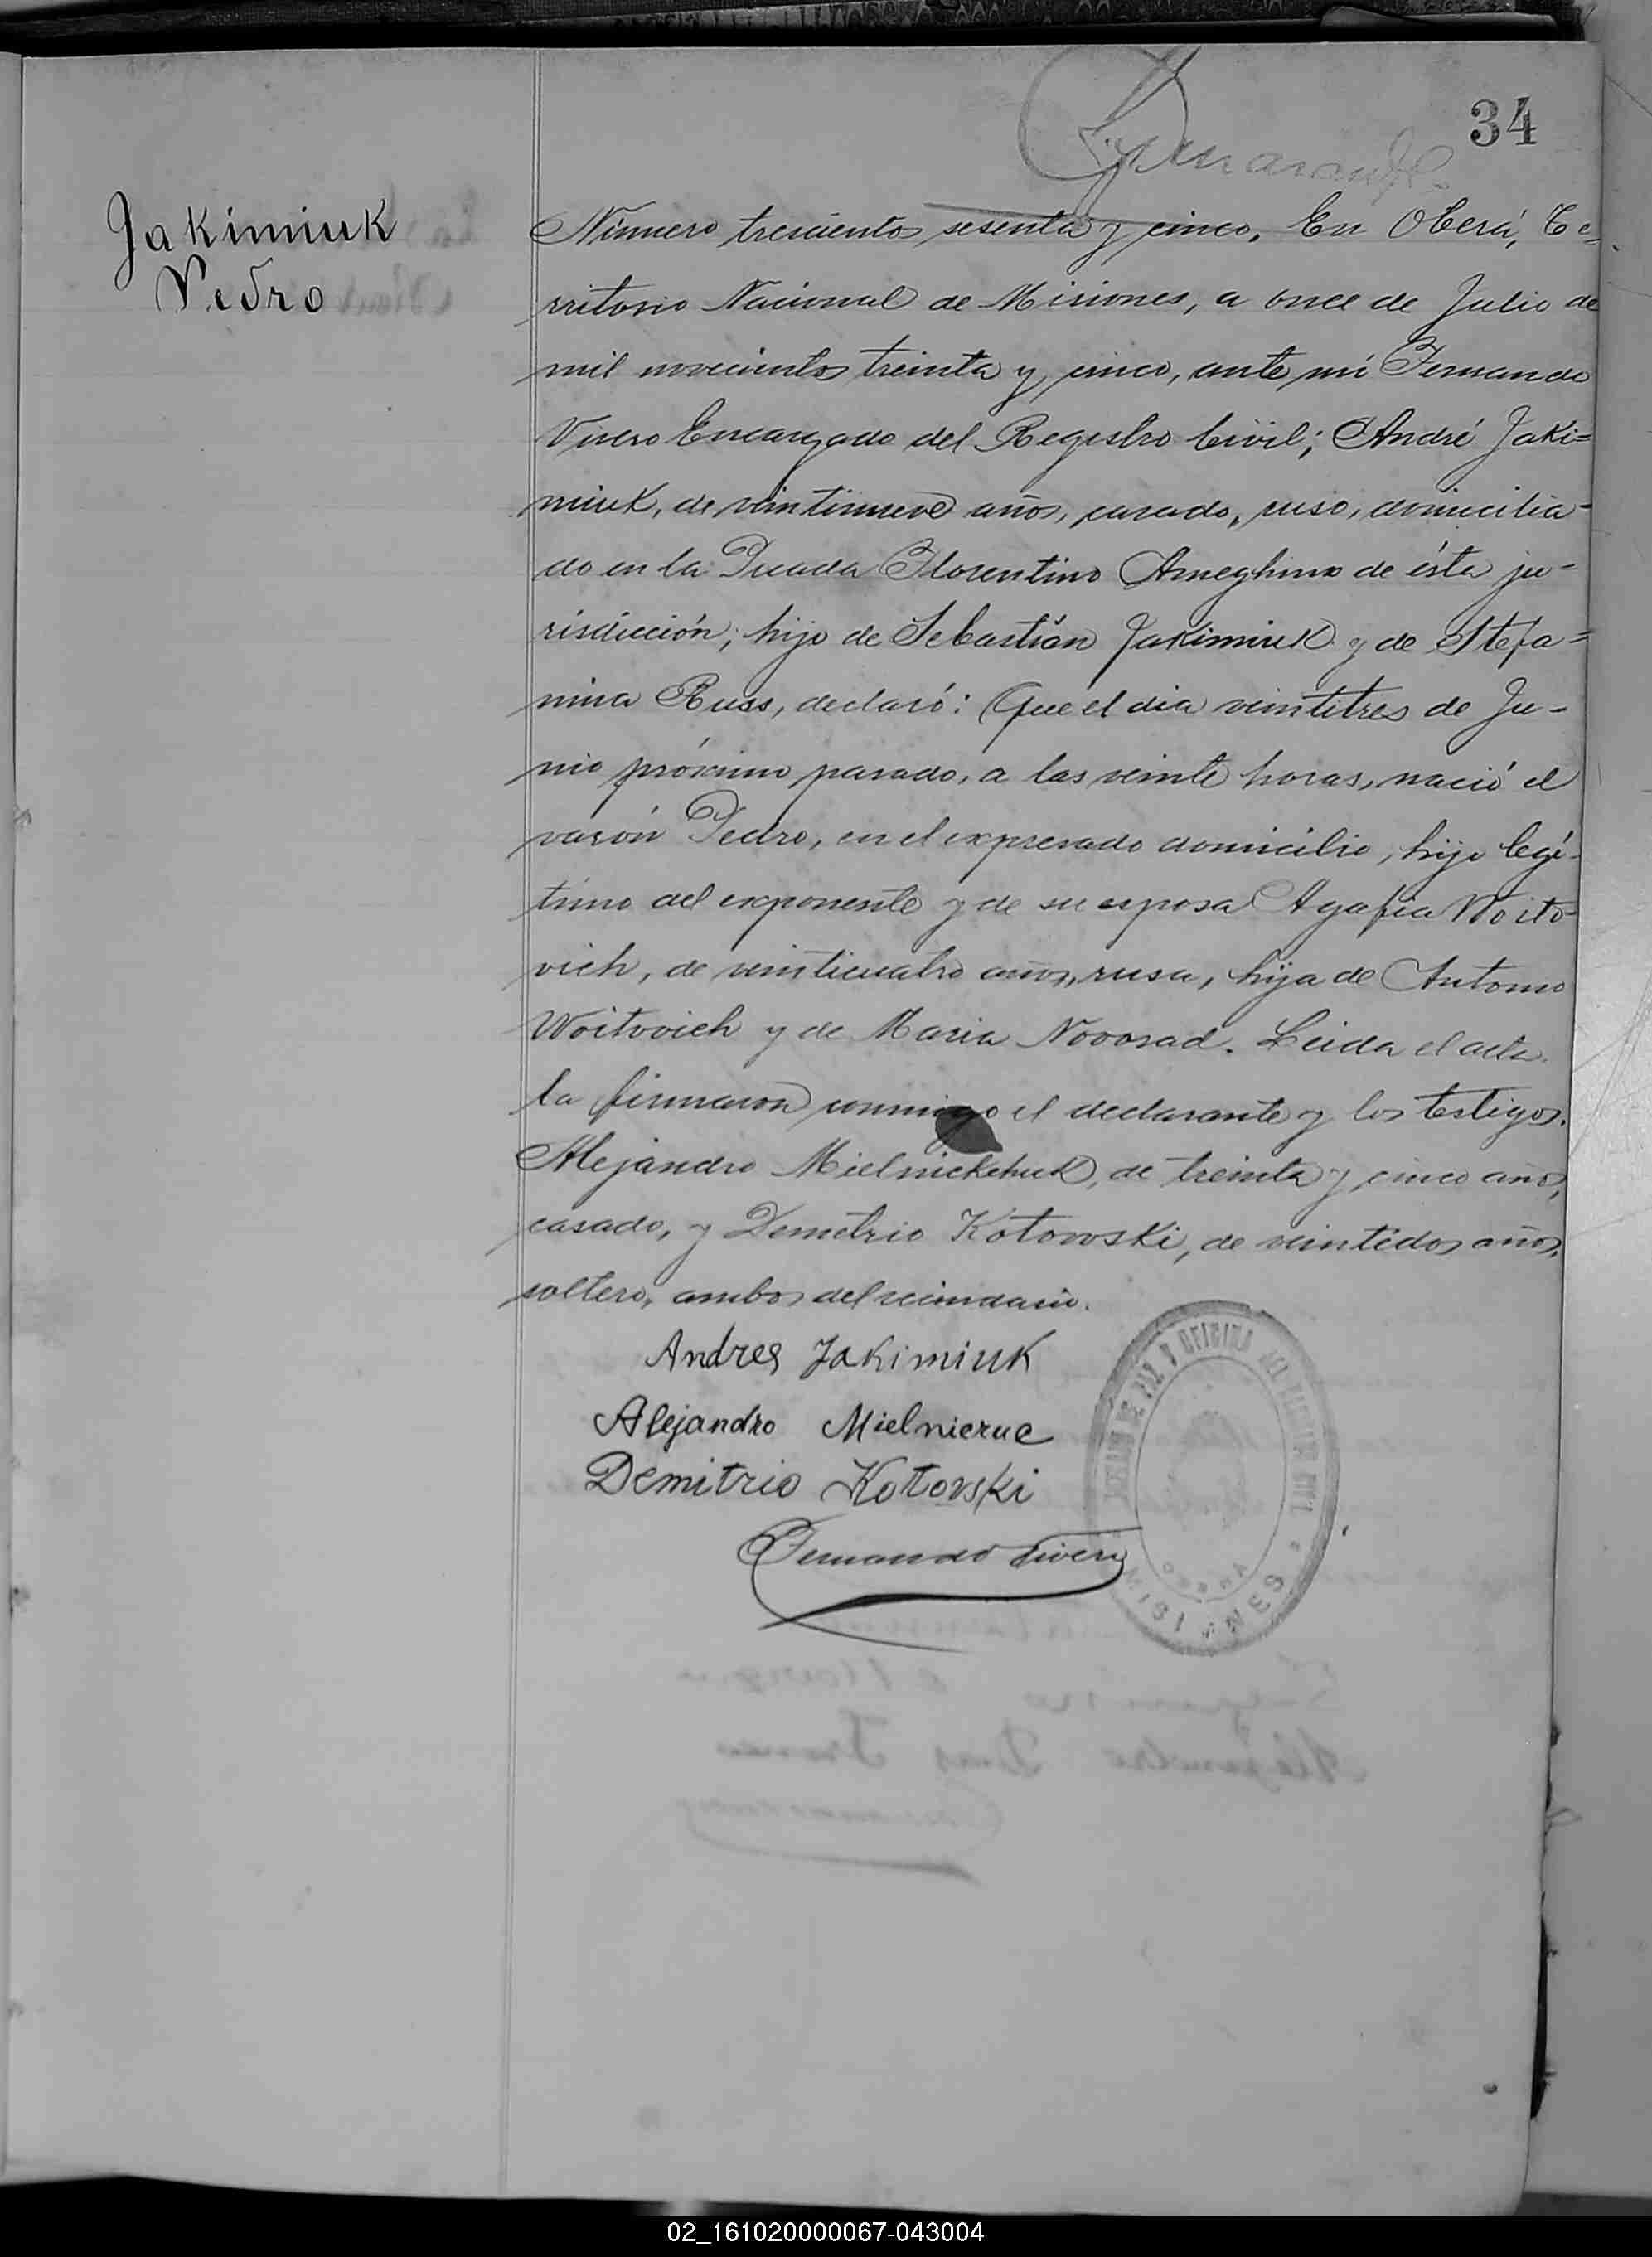 34
Jakimiuk
Pedro
Número trescientos sesenta y cinco. En Oberá, Te=
rritorio Nacional de Misiones, a once de Julio de
mil novecientos treinta y cinco, ante mí Fernando
Vivero Encargado del Registro Civil; André Jaki=
miuk, de veintinueve años, casado, ruso, domicilia-
do en la Picada Florentino Ameghino de ésta ju-
risdicción; hijo de Sebastián Jakimiuk y de Stefa=
nina Russ, declaró: Que el dia veintitres de Ju-
nio próximo pasado, a las veinte horas, nació el
varón Pedro, en el expresado domicilio, hijo legí-
timo del exponente y de su esposa Agafia Woito-
vich, de veinticuatro años, rusa, hija de Antonio
Woitovich y de Maria Novosad. Leida el acta
la firmaron conmigo el declarante y los testigos.
Alejandro Mielnickchuk, de treinta y cinco años,
casado, y Demetrio Kotowski, de veintidos años,
soltero, ambos del vecindario.
Andres Jakimiuk
Alejandro Mielnieruc
Demitrio Kotovski
Fernando Vivero
JUZGADO DE PAZ Y OFICINA DEL REGISTRO CIVIL
OBERA
MISIONES
02_161020000067-043004